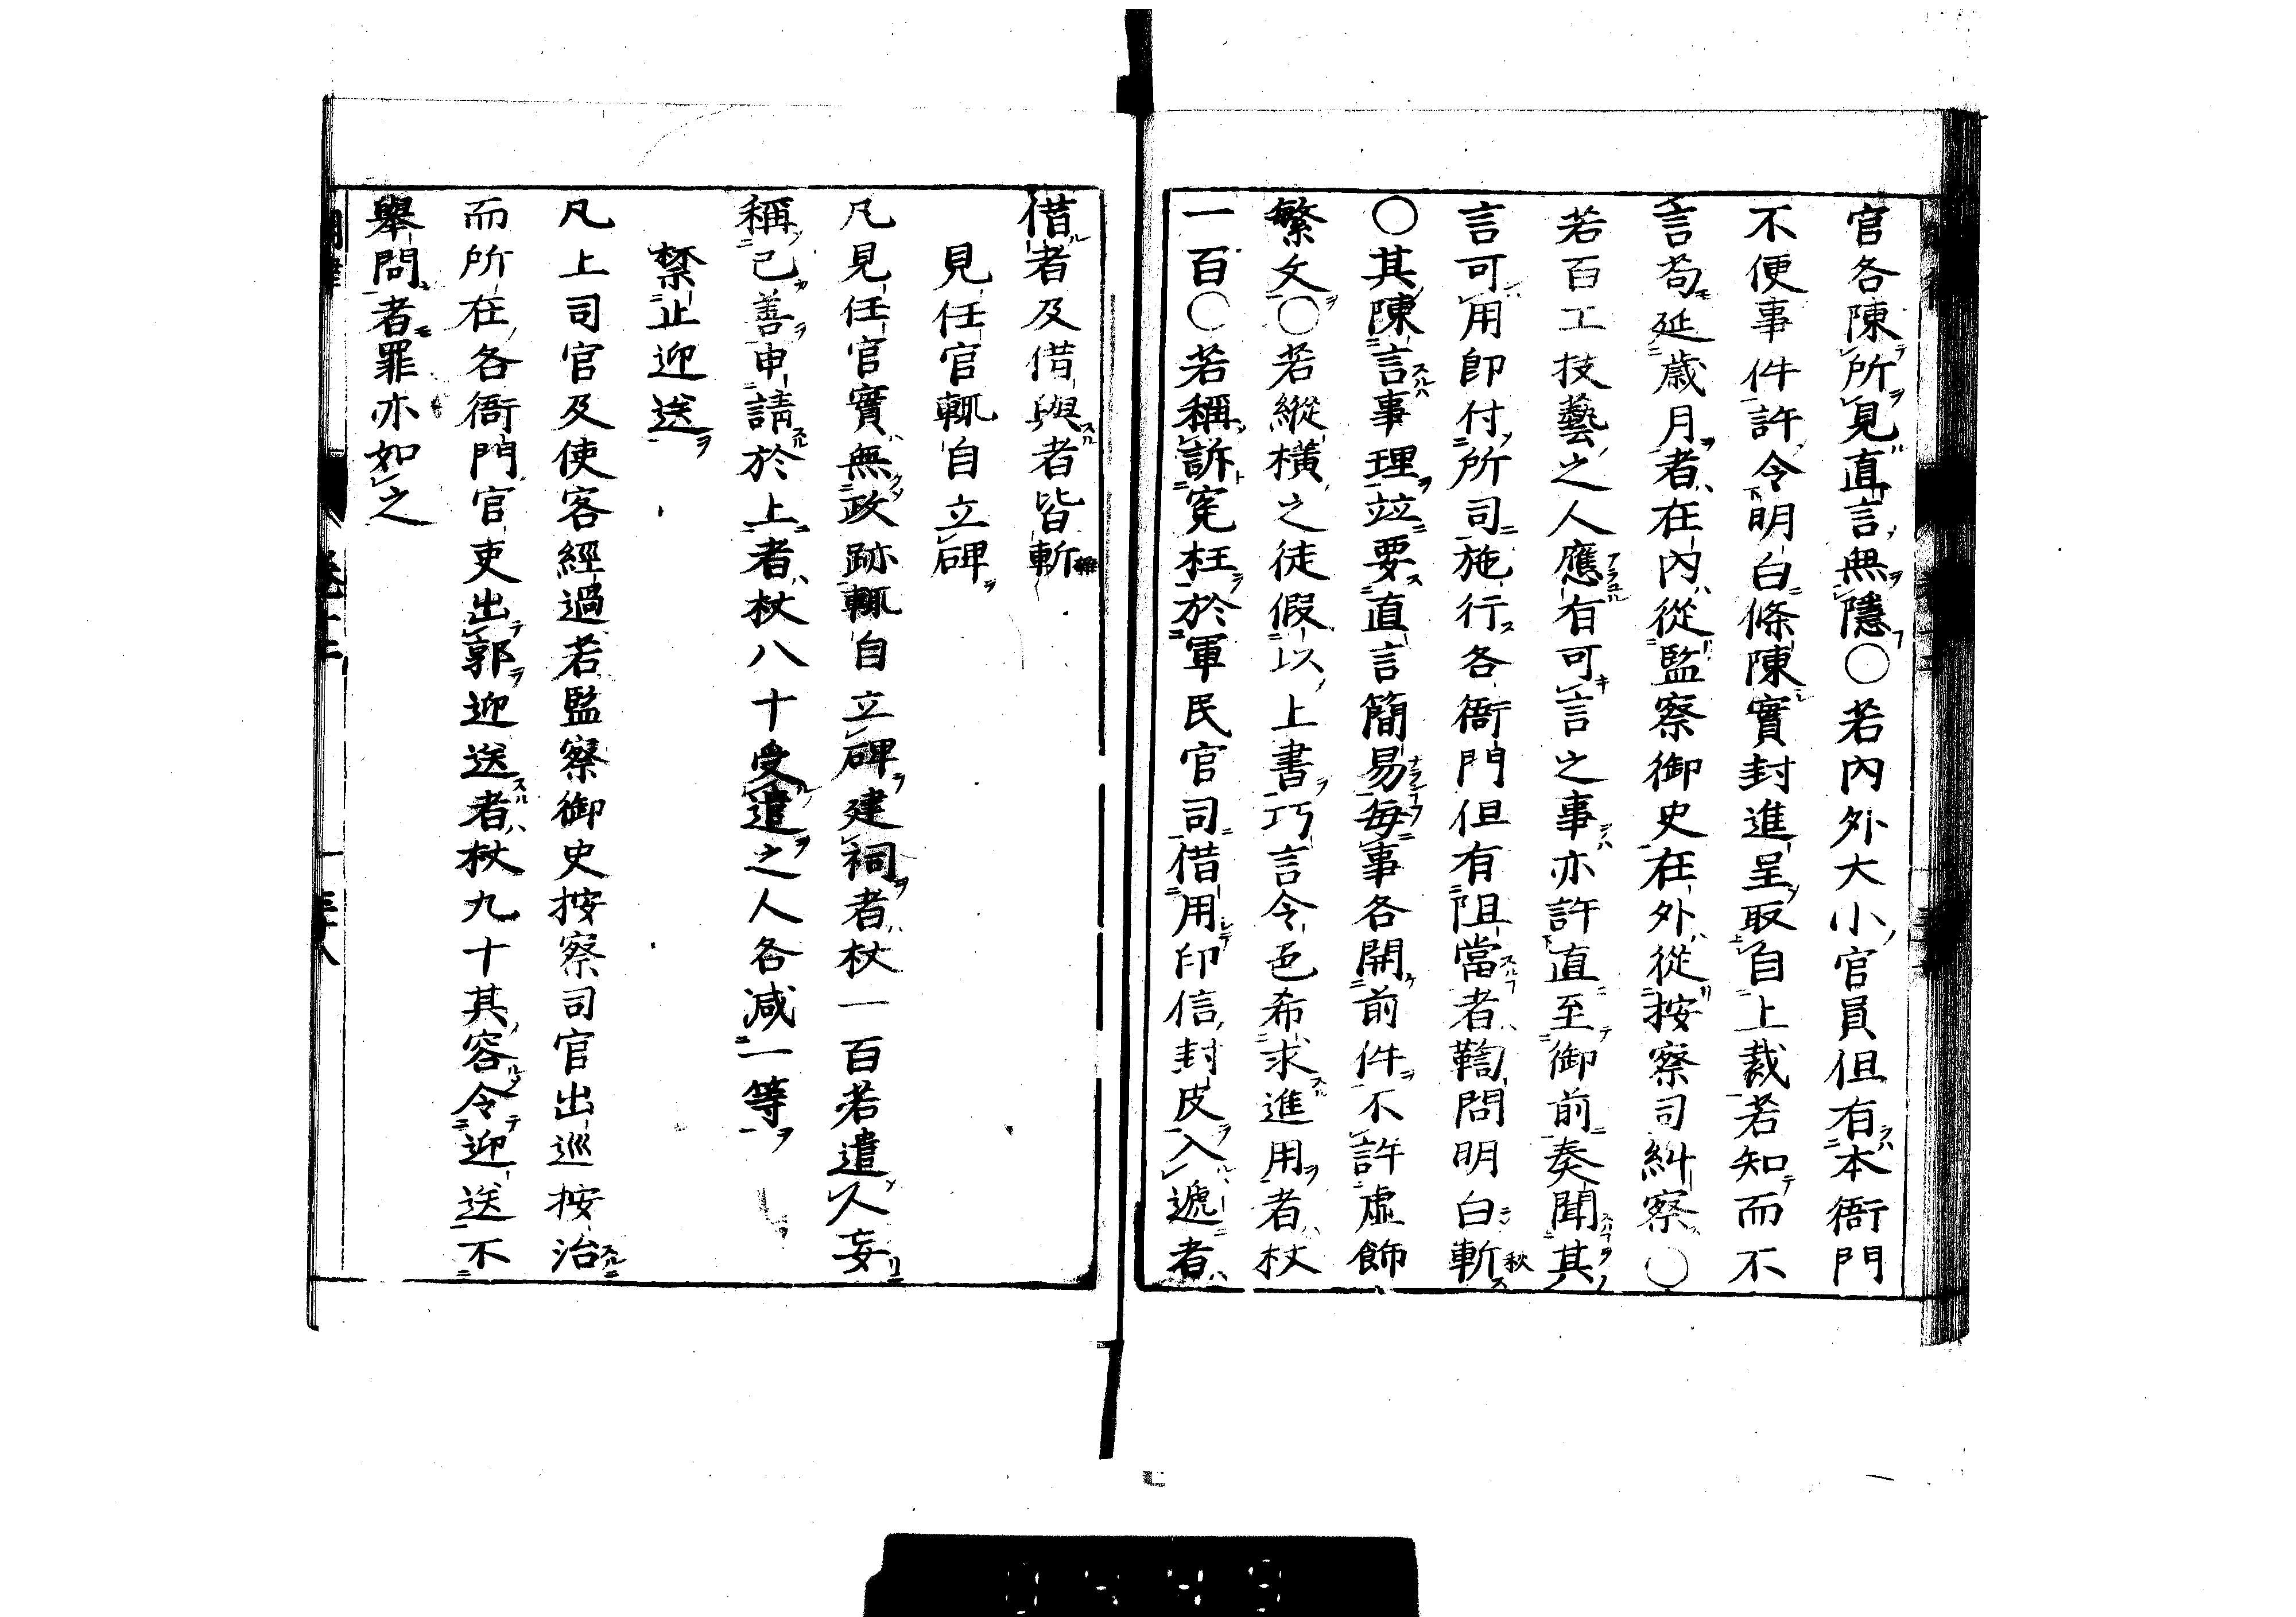 官各陳所見直言無隱○若內外大小官員但有本衙門
不便事件許令明白條陳實封進呈取自上裁若知而不
言苟延歲月者在內從監察御史在外從按察司糾察○
若百工技藝之人應有可言之事亦許直至御前奏聞其
言可用即付所司施行各衙門但有阻當者鞫問明白斬秋
○其陳言事理竝要直言簡易每事各開前件不許虛飾
繁文○若縱橫之徒假以上書巧言令色希求進用者杖
一百○若稱訴冤枉於軍民官司借用印信封皮入遞者
借者及借與者皆斬雜
見任官輒自立碑
凡見任官實無政跡輒自立碑建祠者杖一百若遣人妄
稱己善申請於上者杖八十受遣之人各减一等
禁止迎送
凡上司官及使客經過若監察御史按察司官出巡按治
而所在各衙門官吏出郭迎送者杖九十其容令迎送不
舉問者罪亦如之